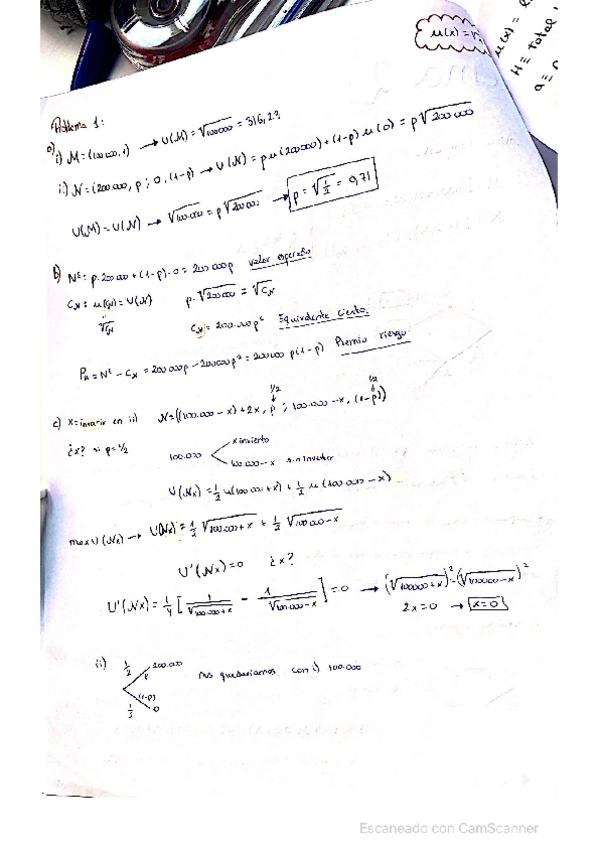 u(x) =
u(x) =
H = total
a =
Problema 1:
a) i) M = (100.000, 1) → U(M) = √100.000 = 316,23
ii) N = (200.000, p ; 0, (1-p) → U(N) = p u(200.000) + (1-p) u(0) = p√200.000
U(M) = U(N) → √100.000 = p√200.000 → p = √1/2 = 0,71
b) Nᴱ = p·200.000 + (1-p)·0 = 200.000p valor esperado
C_N : u(C_N) = U(N) p·√200.000 = √C_N
√C_N C_N = 200.000p² Equivalente cierto.
P_N = Nᴱ - C_N = 200.000p - 200.000p² = 200.000 p(1-p) Premio riesgo
1/2 1/2
c) x = invertir en ii) N = ((100.000 - x) + 2x, p ; 100.000 - x, (1-p))
¿x? si p = 1/2 100.000 x invierto
100.000 - x sin invertir
U(Nx) = 1/2 u(100.000 + x) + 1/2 u(100.000 - x)
max U(Nx) → U(Nx) = 1/2 √100.000 + x + 1/2 √100.000 - x
U'(Nx) = 0 ¿x?
U'(Nx) = 1/4 [ 1/√100.000 + x - 1/√100.000 - x ] = 0 → (√100000 + x)² = (√100000 - x)²
2x = 0 → x = 0
ii) 1/2 p 200.000 nos quedaríamos con i) 100.000
(1-p) 0
Escaneado con CamScanner